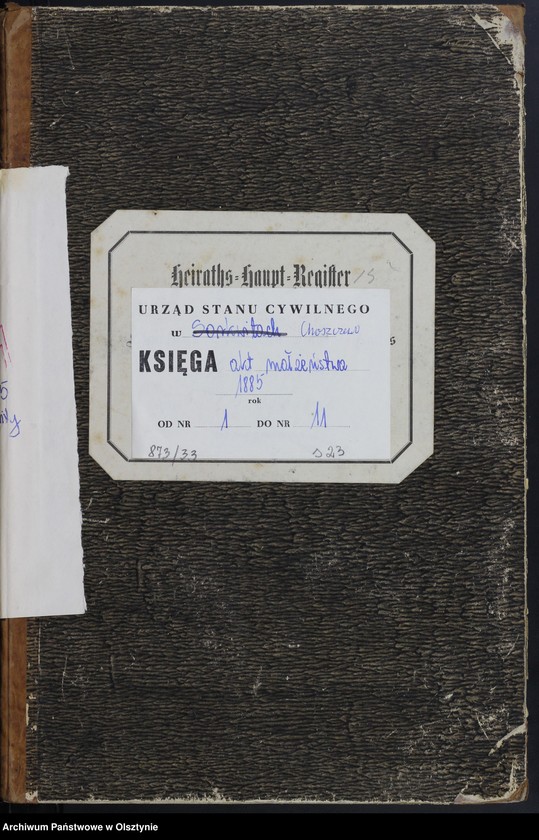 Heiraths-Haupt-Register
URZĄD STANU CYWILNEGO
w Sorkwitach Choszczewo
KSIĘGA akt małżeństwa
1885
rok
OD NR 1 DO NR 11
873/33 s 23
5
Archiwum Państwowe w Olsztynie